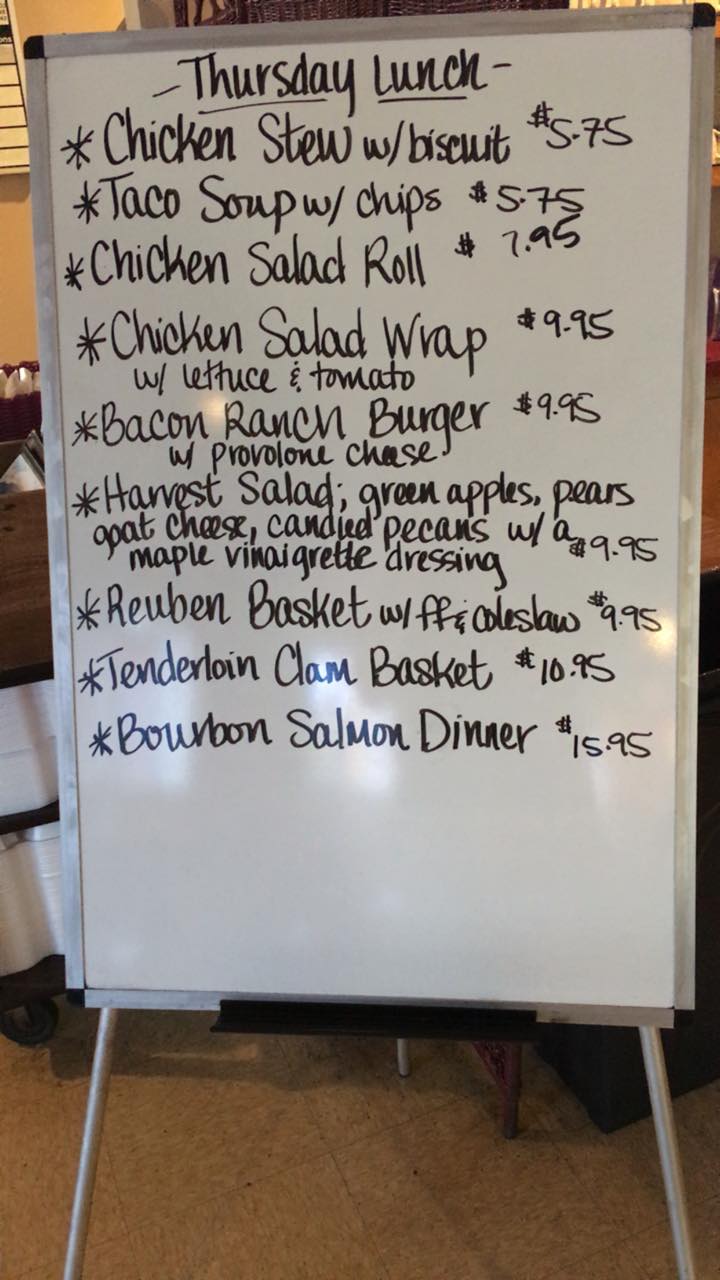 - Thursday Lunch -
* Chicken Stew w/ biscuit $5.75
* Taco Soup w/ chips $5.75
* Chicken Salad Roll $7.95
* Chicken Salad Wrap $9.95
w/ lettuce & tomato
* Bacon Ranch Burger $9.95
w/ provolone cheese
* Harvest Salad; green apples, pears
goat cheese, candied pecans w/ a
maple vinaigrette dressing $9.95
* Reuben Basket w/ ff & coleslaw $9.95
* Tenderloin Clam Basket $10.95
* Bourbon Salmon Dinner $15.95